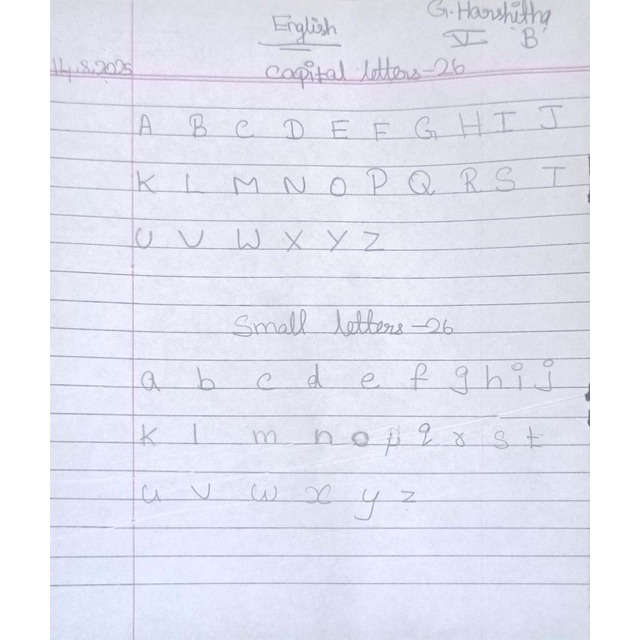 English
G. Harshitha
V B
14.8.2025
capital letters-26
A B C D E F G H I J
K L M N O P Q R S T
U V W X Y Z
Small letters-26
a b c d e f g h i j
k l m n o p q r s t
u v w x y z